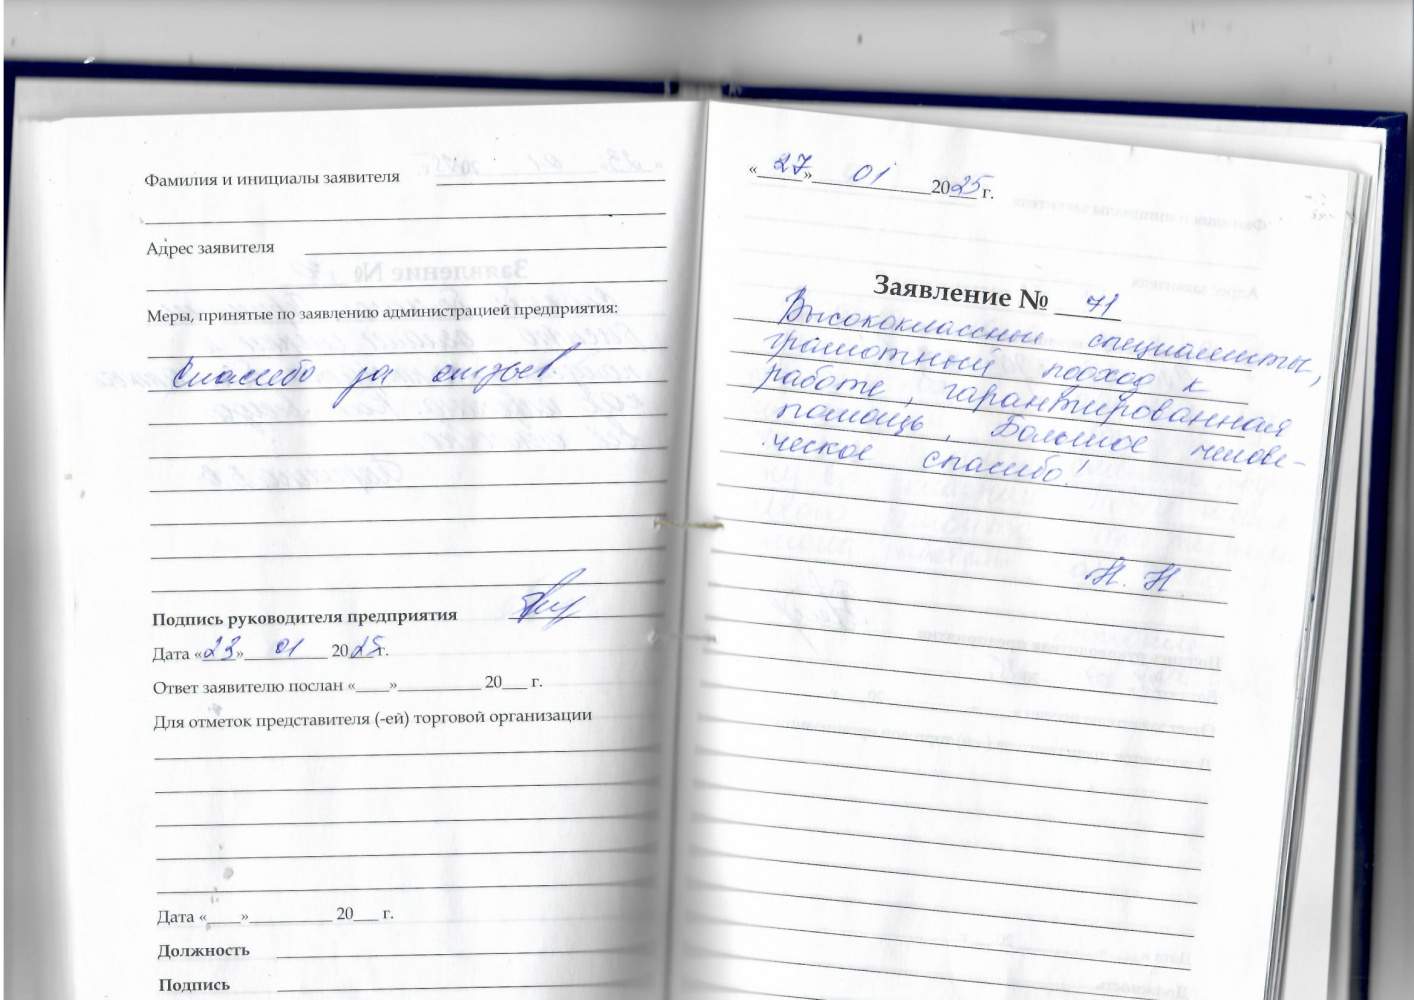 Фамилия и инициалы заявителя
Адрес заявителя
Меры, принятые по заявлению администрацией предприятия:
Спасибо за отзыв.
Подпись руководителя предприятия
Дата «23» 01 2025 г.
Ответ заявителю послан «____»__________ 20___ г.
Для отметок представителя (-ей) торговой организации
Дата «____»__________ 20___ г.
Должность
Подпись
«27» 01 2025 г.
Заявление № 71
Высококлассные специалисты,
грамотный подход к
работе, гарантированная
помощь. Большое челове-
ческое спасибо!
Н. Н.